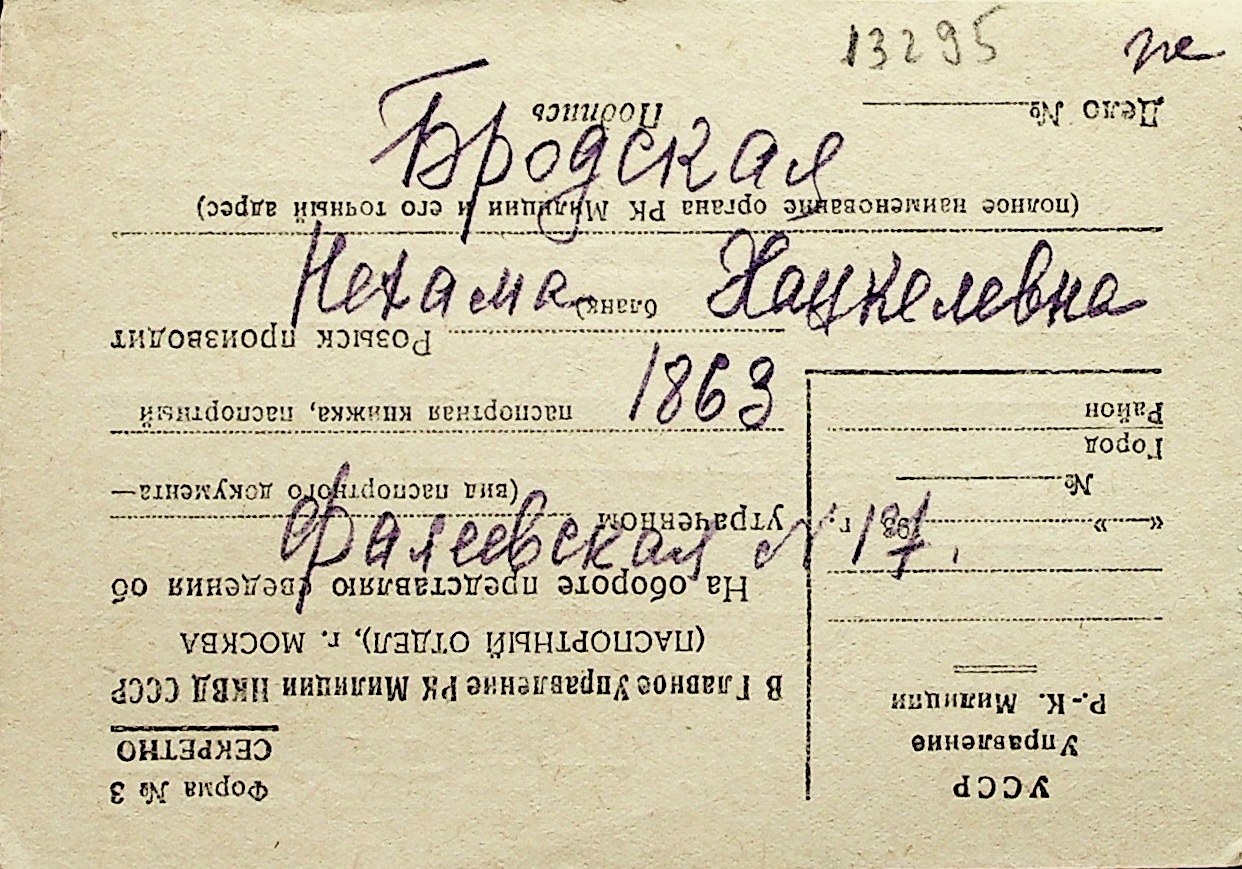 13295 не
Бродская
Нехама Хацкелевна
1863
Фалеевская № 17.
УССР
Управление
Р.-К. Милиции
« » 193 г.
№
Город
Район
Форма № 3
СЕКРЕТНО
В Главное Управление РК Милиции НКВД СССР
(ПАСПОРТНЫЙ ОТДЕЛ), г. МОСКВА
На обороте представляю сведения об
утраченном
(вид паспортного документа—
паспортная книжка, паспортный
бланк)
Розыск производит
(полное наименование органа РК Милиции и его точный адрес)
Подпись
Дело №